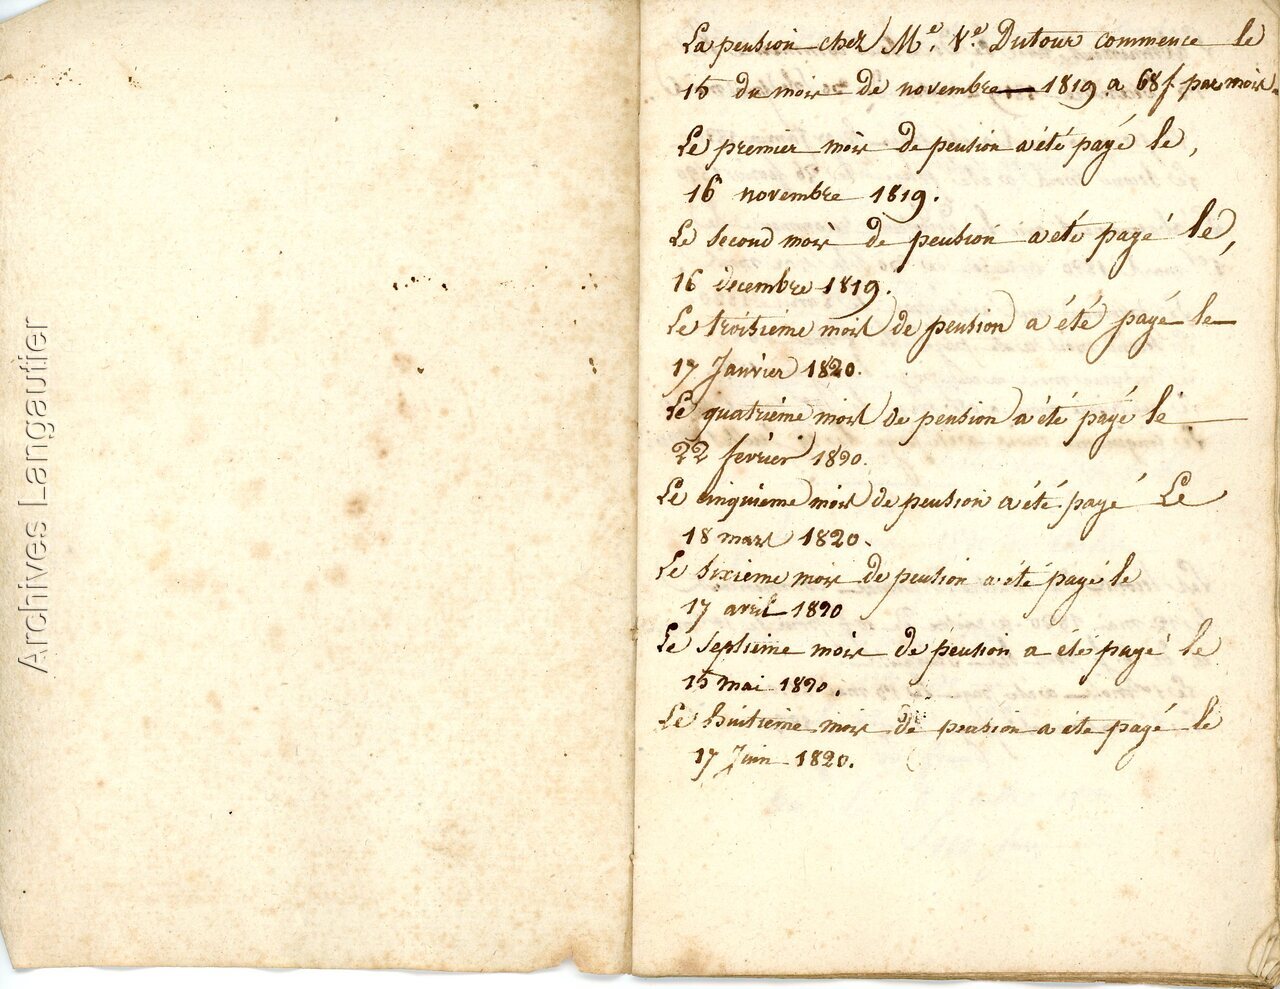 Archives Langautier
La pension chez Me. Ve. Dutour commence le
15 du mois de novembre 1819. a 68f par mois.
Le premier mois de pension a été payé le,
16 novembre 1819.
Le second mois de pension a été payé lé,
16 decembre 1819.
Le troisiéme mois de pension a été payé le
17 Janvier 1820.
Le quatriéme mois de pension a été payé le
22 février 1820.
Le cinquieme mois de pension a été payé Le
18 mars 1820.
Le sixieme mois de pension a été payé le
17 avril 1820
Le septieme mois de pension a été payé le
15 mai 1820.
Le huitieme mois de pension a été payé le
17 Juin 1820.